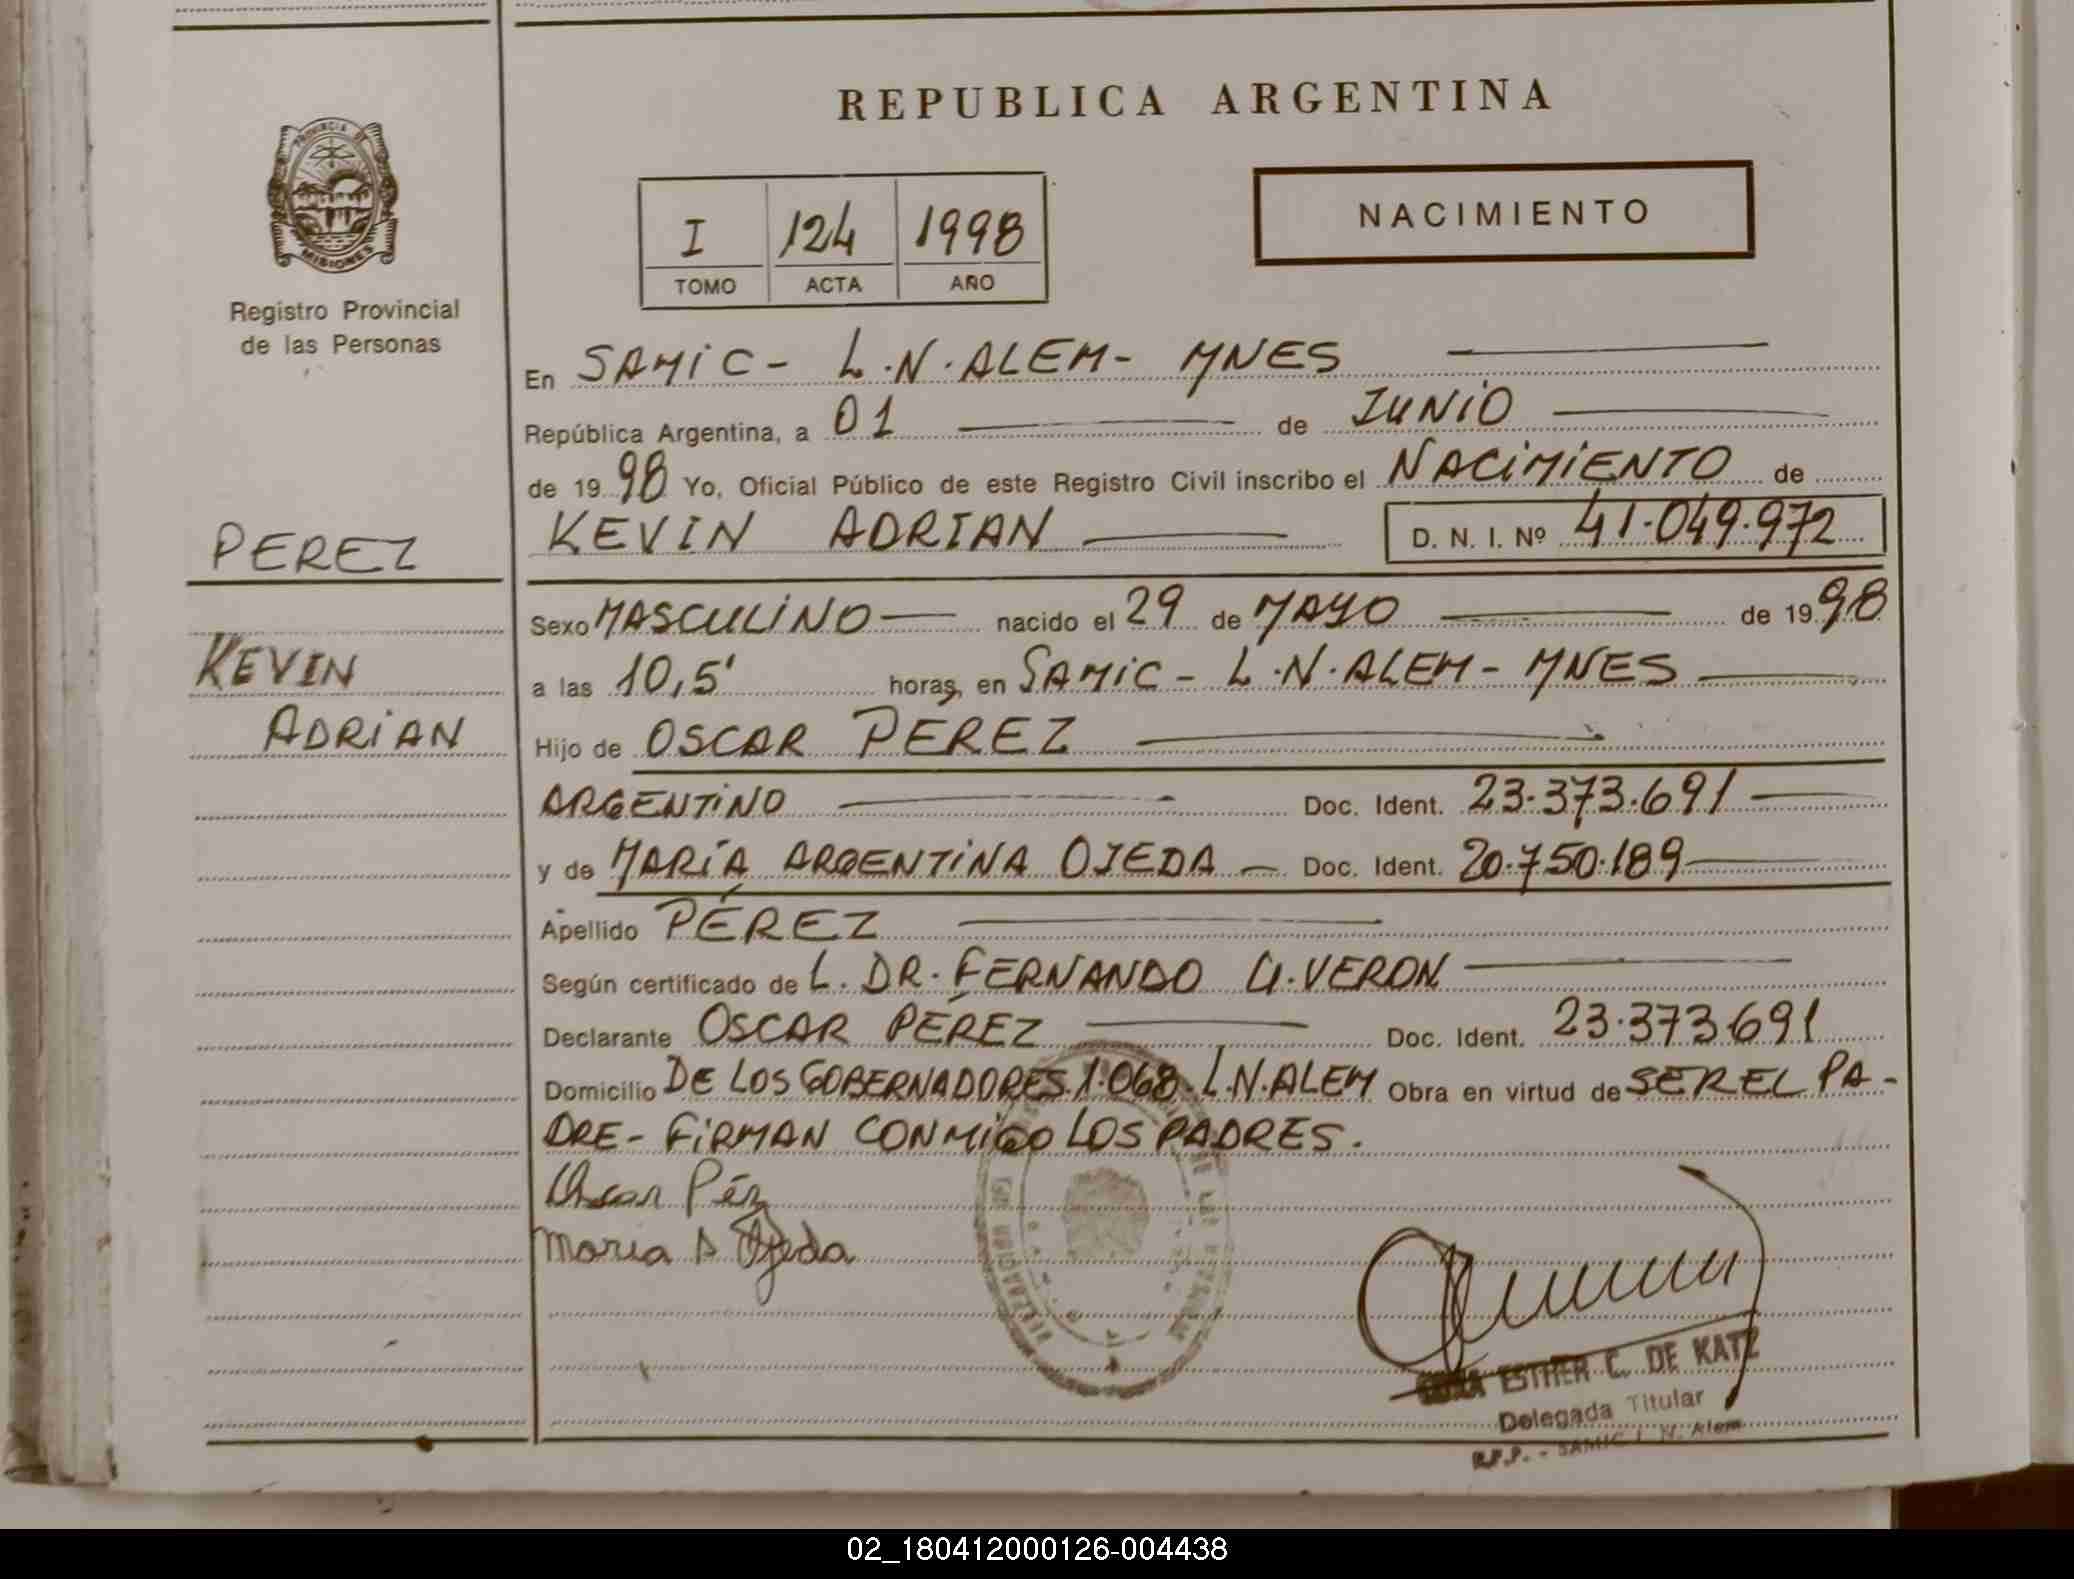 REPUBLICA ARGENTINA
PROVINCIA DE
MISIONES
Registro Provincial
de las Personas
I 124 1998
TOMO ACTA AÑO
NACIMIENTO
En SAMIC - L.N. ALEM - MNES
República Argentina, a 01 de JUNIO
de 1998 Yo, Oficial Público de este Registro Civil inscribo el NACIMIENTO de
KEVIN ADRIAN D. N. I. Nº 41.049.972
PEREZ
KEVIN
ADRIAN
Sexo MASCULINO nacido el 29 de MAYO de 1998
a las 10,5' horas, en SAMIC - L.N. ALEM - MNES
Hijo de OSCAR PEREZ
ARGENTINO Doc. Ident. 23.373.691
y de MARÍA ARGENTINA OJEDA Doc. Ident. 20.750.189
Apellido PÉREZ
Según certificado de L. DR. FERNANDO U. VERON
Declarante OSCAR PÉREZ Doc. Ident. 23.373.691
Domicilio DE LOS GOBERNADORES 1.068 - L.N. ALEM Obra en virtud de SER EL PA-
DRE - FIRMAN CONMIGO LOS PADRES.
Oscar Péz
Maria A Ojeda
ESTHER C. DE KATZ
Delegada Titular
R.P.P. - SAMIC L. N. Alem
02_180412000126-004438